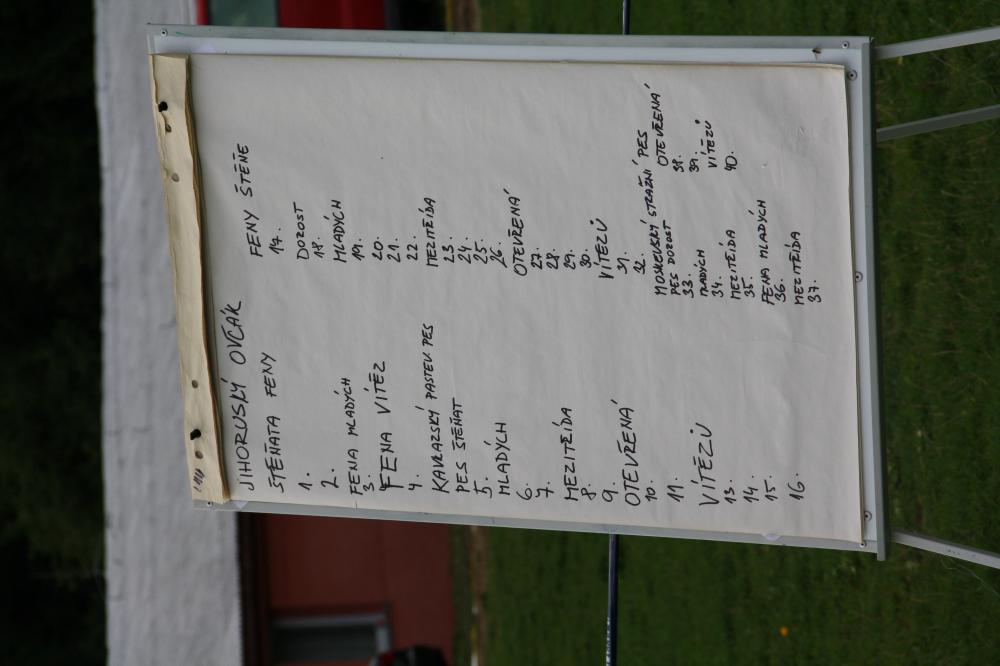 JIHORUSKÝ OVČÁK
ŠTĚŇATA FENY
1.
2.
FENA MLADÝCH
3.
FENA VÍTĚZ
4.
KAVKAZSKÝ PASTEV. PES
PES ŠTĚŇAT
5.
MLADÝCH
6.
7.
MEZITŘÍDA
8
9.
OTEVŘENÁ
10.
11.
VÍTĚZŮ
13.
14.
15.
16
FENY ŠTĚNE
17.
DOROST
18.
MLADÝCH
19.
20.
21.
22.
MEZITŘÍDA
23.
24.
25.
26.
OTEVŘENÁ
27.
28
29.
30.
VÍTĚZŮ
31.
32.
MOSKEVSKÝ STRAŽNÍ PES
PES DOROST
33.
MLADÝCH
34.
MEZITŘÍDA
35.
FENA MLADÝCH
36.
MEZITŘÍDA
37.
OTEVŘENÁ
38.
39.
VÍTĚZŮ
40.